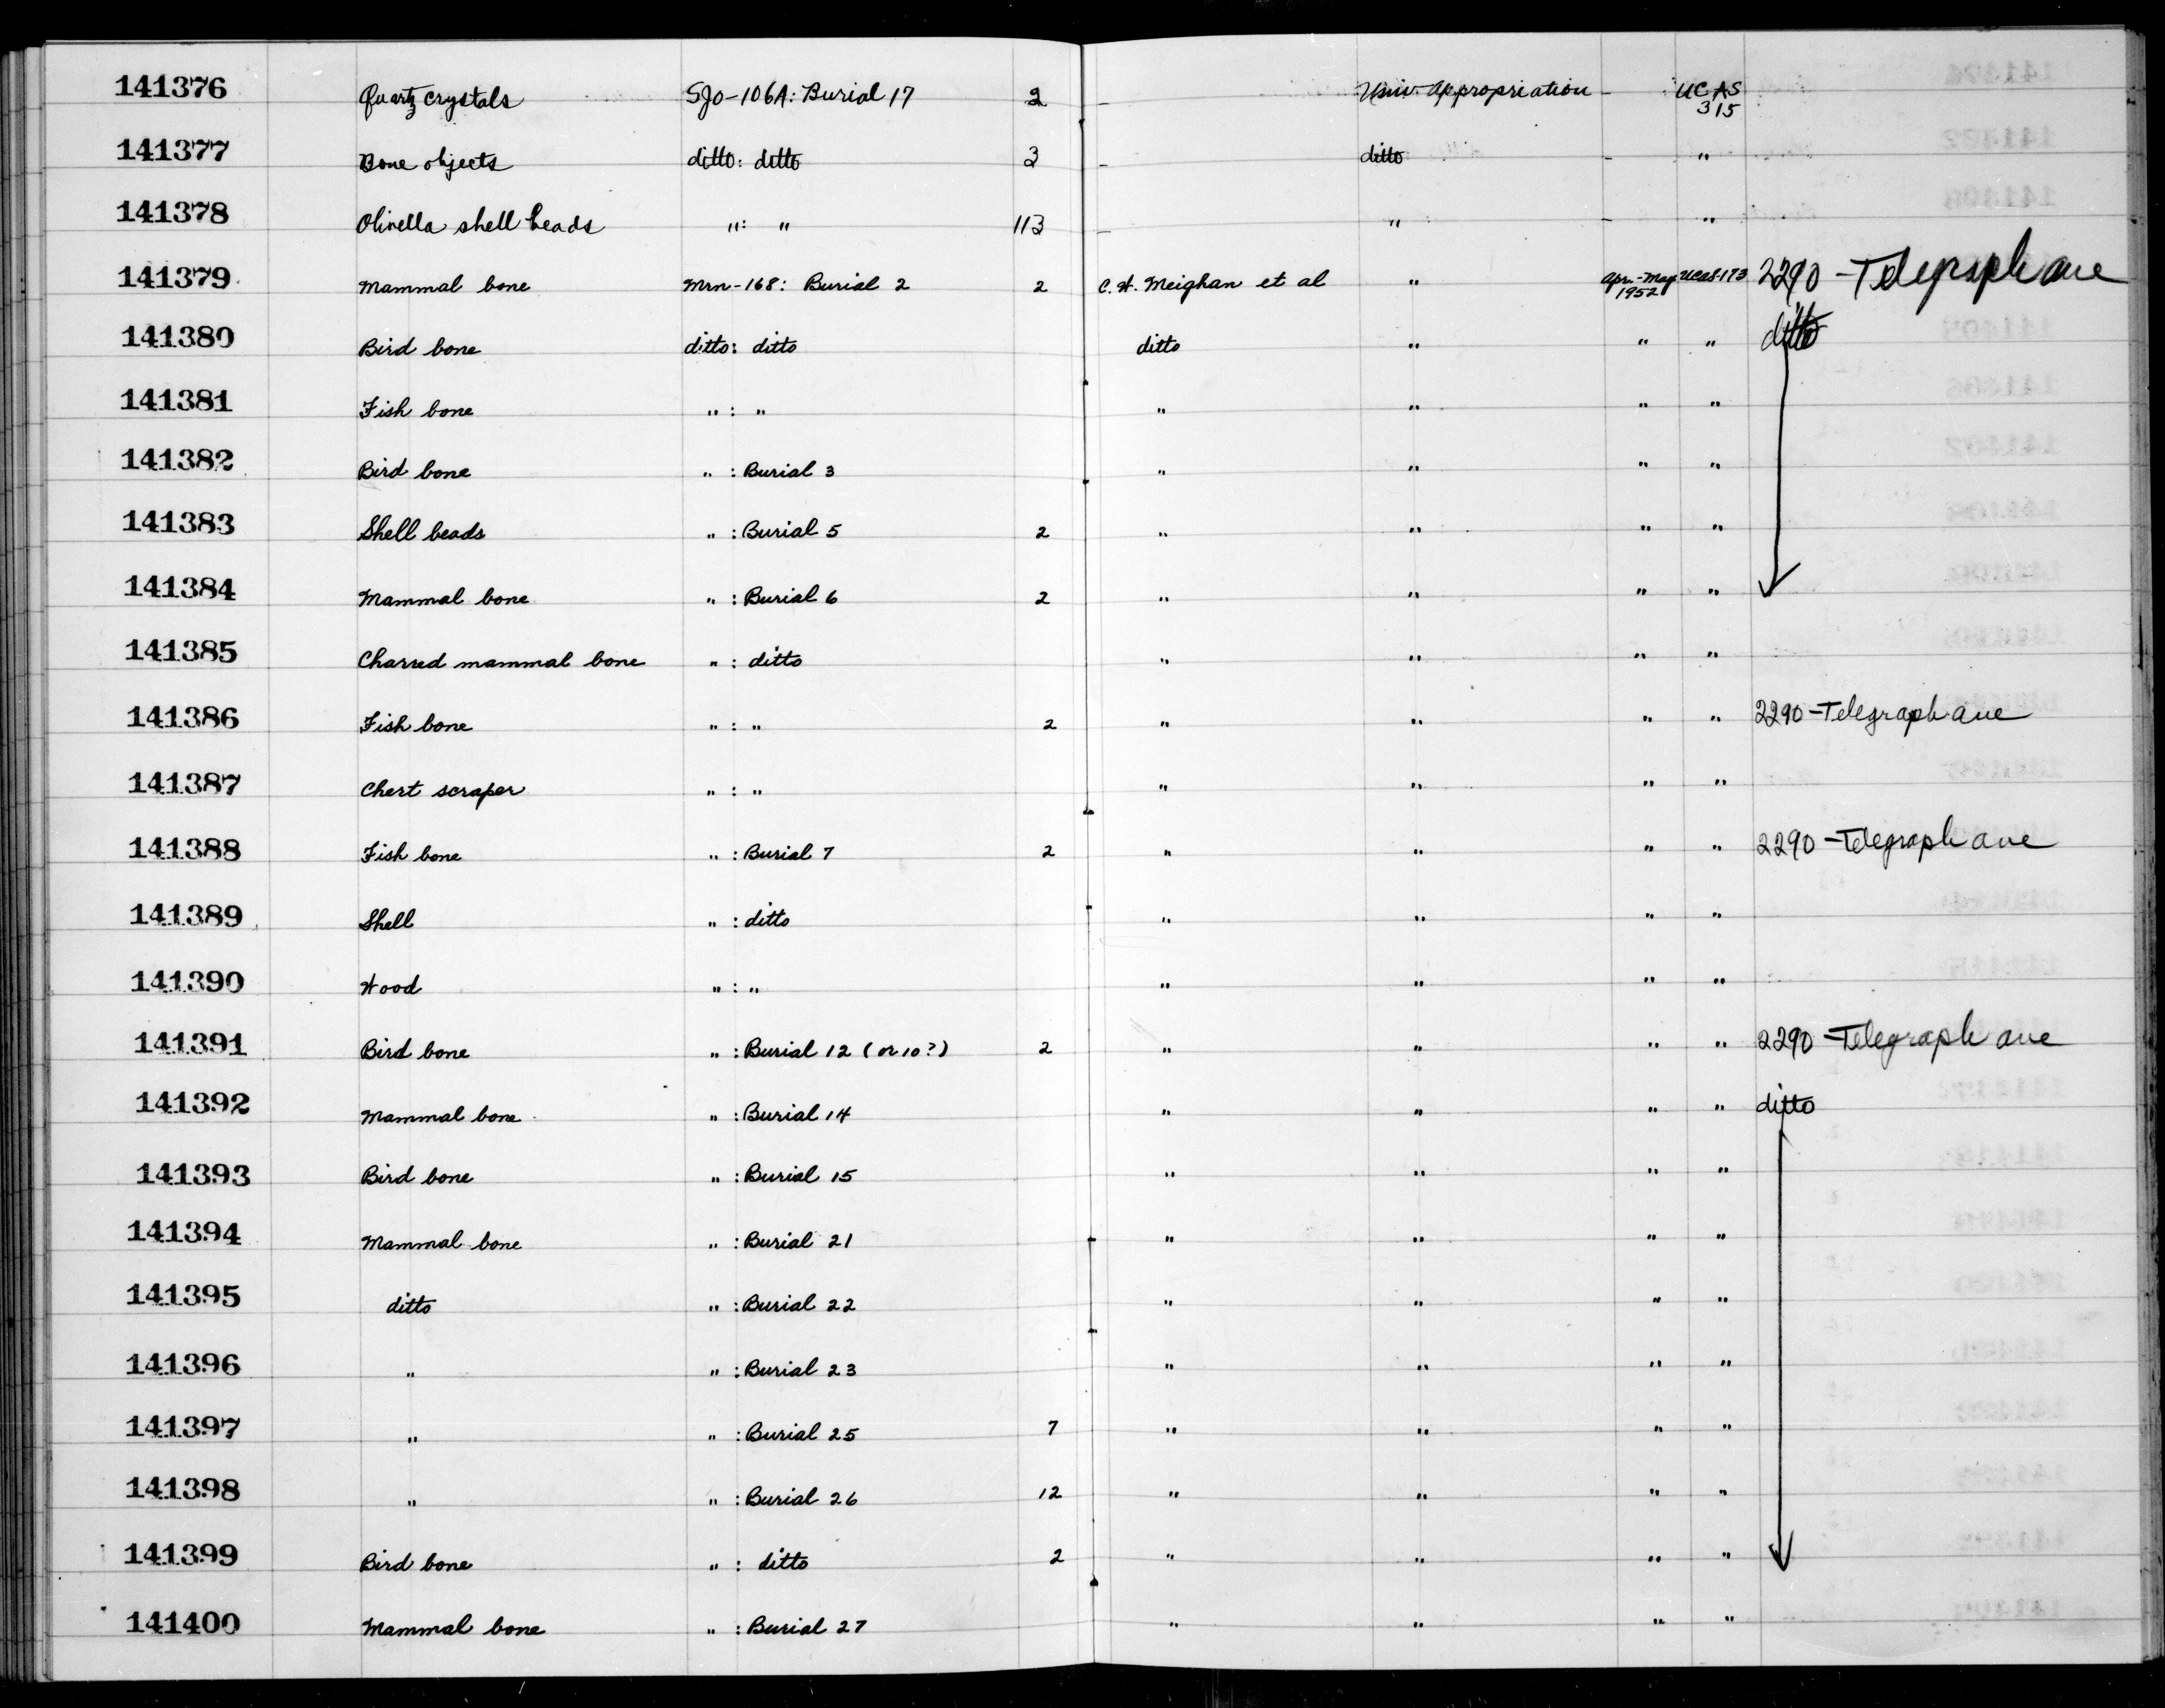 141376 Quartz crystals SJo-106A: Burial 17 2 - Univ. Appropriation - UCAS 315
141377 Bone objects ditto: ditto 3 - ditto - "
141378 Olivella shell beads ": " 113 - " - "
141379 Mammal bone Mrn-168: Burial 2 2 C.W. Meighan et al " Apr.-May 1952 UCAS-173 2290 - Telegraph ave
141380 Bird bone ditto: ditto ditto " " " ditto
141381 Fish bone " : " " " " "
141382 Bird bone " : Burial 3 " " " "
141383 Shell beads " : Burial 5 2 " " " "
141384 Mammal bone " : Burial 6 2 " " " "
141385 Charred mammal bone " : ditto " " " "
141386 Fish bone " : " 2 " " " " 2290 - Telegraph ave
141387 Chert scraper " : " " " " "
141388 Fish bone " : Burial 7 2 " " " " 2290 - Telegraph ave
141389 Shell " : ditto " " " "
141390 Wood " : " " " " "
141391 Bird bone " : Burial 12 (or 10?) 2 " " " " 2290 - Telegraph ave
141392 Mammal bone " : Burial 14 " " " " ditto
141393 Bird bone " : Burial 15 " " " "
141394 Mammal bone " : Burial 21 " " " "
141395 ditto " : Burial 22 " " " "
141396 " " : Burial 23 " " " "
141397 " " : Burial 25 7 " " " "
141398 " " : Burial 26 12 " " " "
141399 Bird bone " : ditto 2 " " " "
141400 Mammal bone " : Burial 27 " " " "